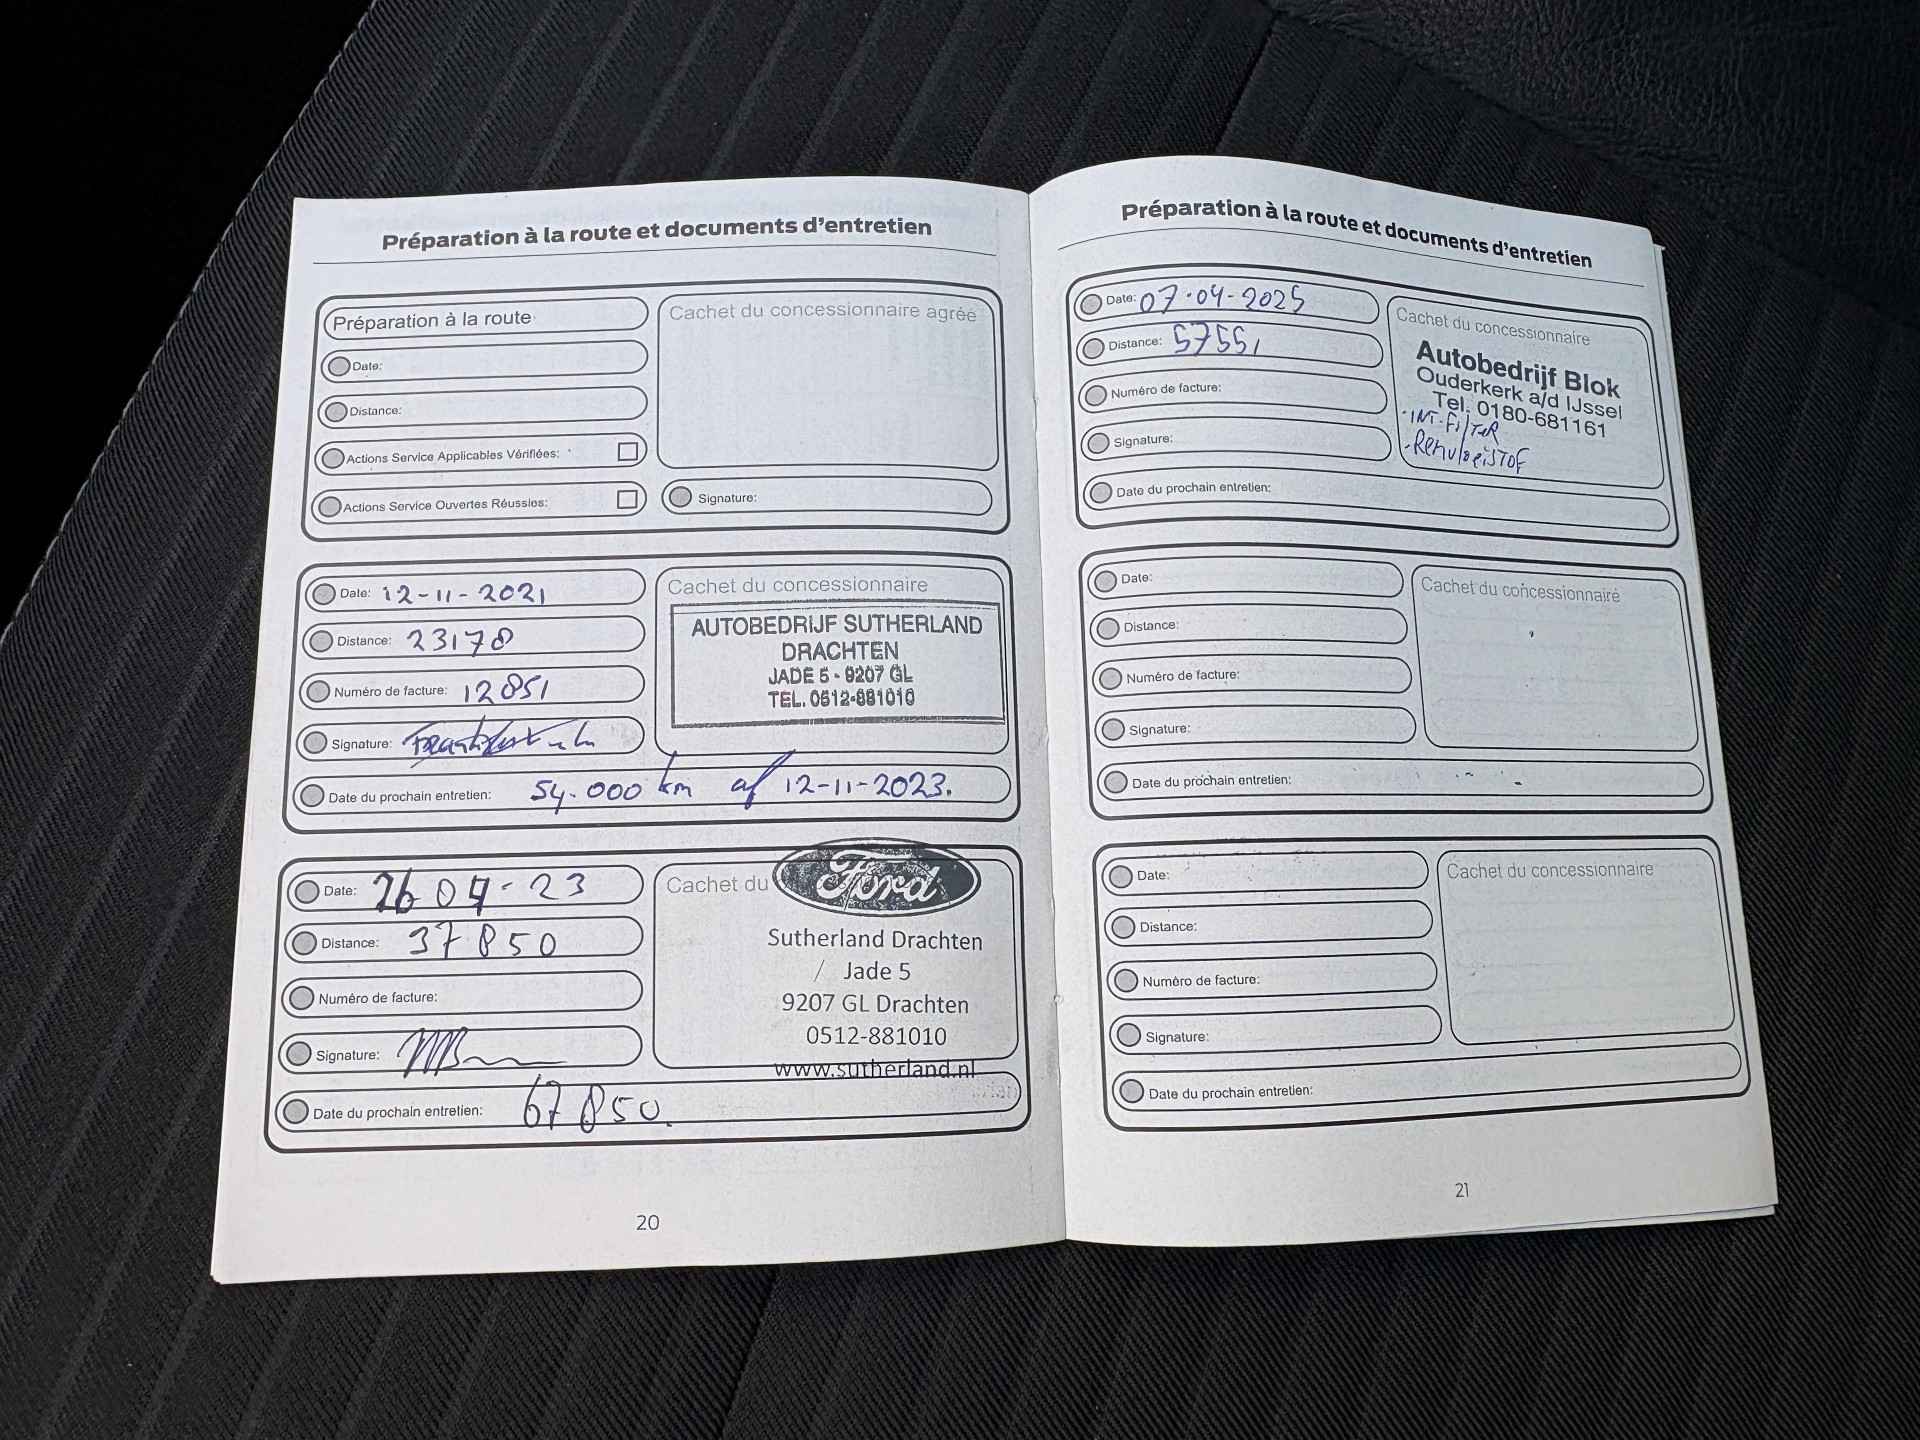 Préparation à la route et documents d'entretien
Préparation à la route
Cachet du concessionnaire agréé
Date:
Distance:
Actions Service Applicables Vérifiées:
Actions Service Ouvertes Réussies:
Signature:
Date: 12-11-2021
Distance: 23178
Numéro de facture: 12851
Signature:
Date du prochain entretien: 54.000 km af 12-11-2023.
Cachet du concessionnaire
AUTOBEDRIJF SUTHERLAND
DRACHTEN
JADE 5 - 9207 GL
TEL. 0512-881010
Date: 26 04-23
Distance: 37850
Numéro de facture:
Signature:
Date du prochain entretien: 67850.
Cachet du
Ford
Sutherland Drachten
Jade 5
9207 GL Drachten
0512-881010
www.sutherland.nl
20
Préparation à la route et documents d'entretien
Date: 07-04-2025
Distance: 57551
Numéro de facture:
Signature:
Date du prochain entretien:
Cachet du concessionnaire
Autobedrijf Blok
Ouderkerk a/d IJssel
Tel. 0180-681161
-INT-FilTeR
-Remvloeistof
Date:
Distance:
Numéro de facture:
Signature:
Date du prochain entretien:
Cachet du concessionnaire
Date:
Distance:
Numéro de facture:
Signature:
Date du prochain entretien:
Cachet du concessionnaire
21